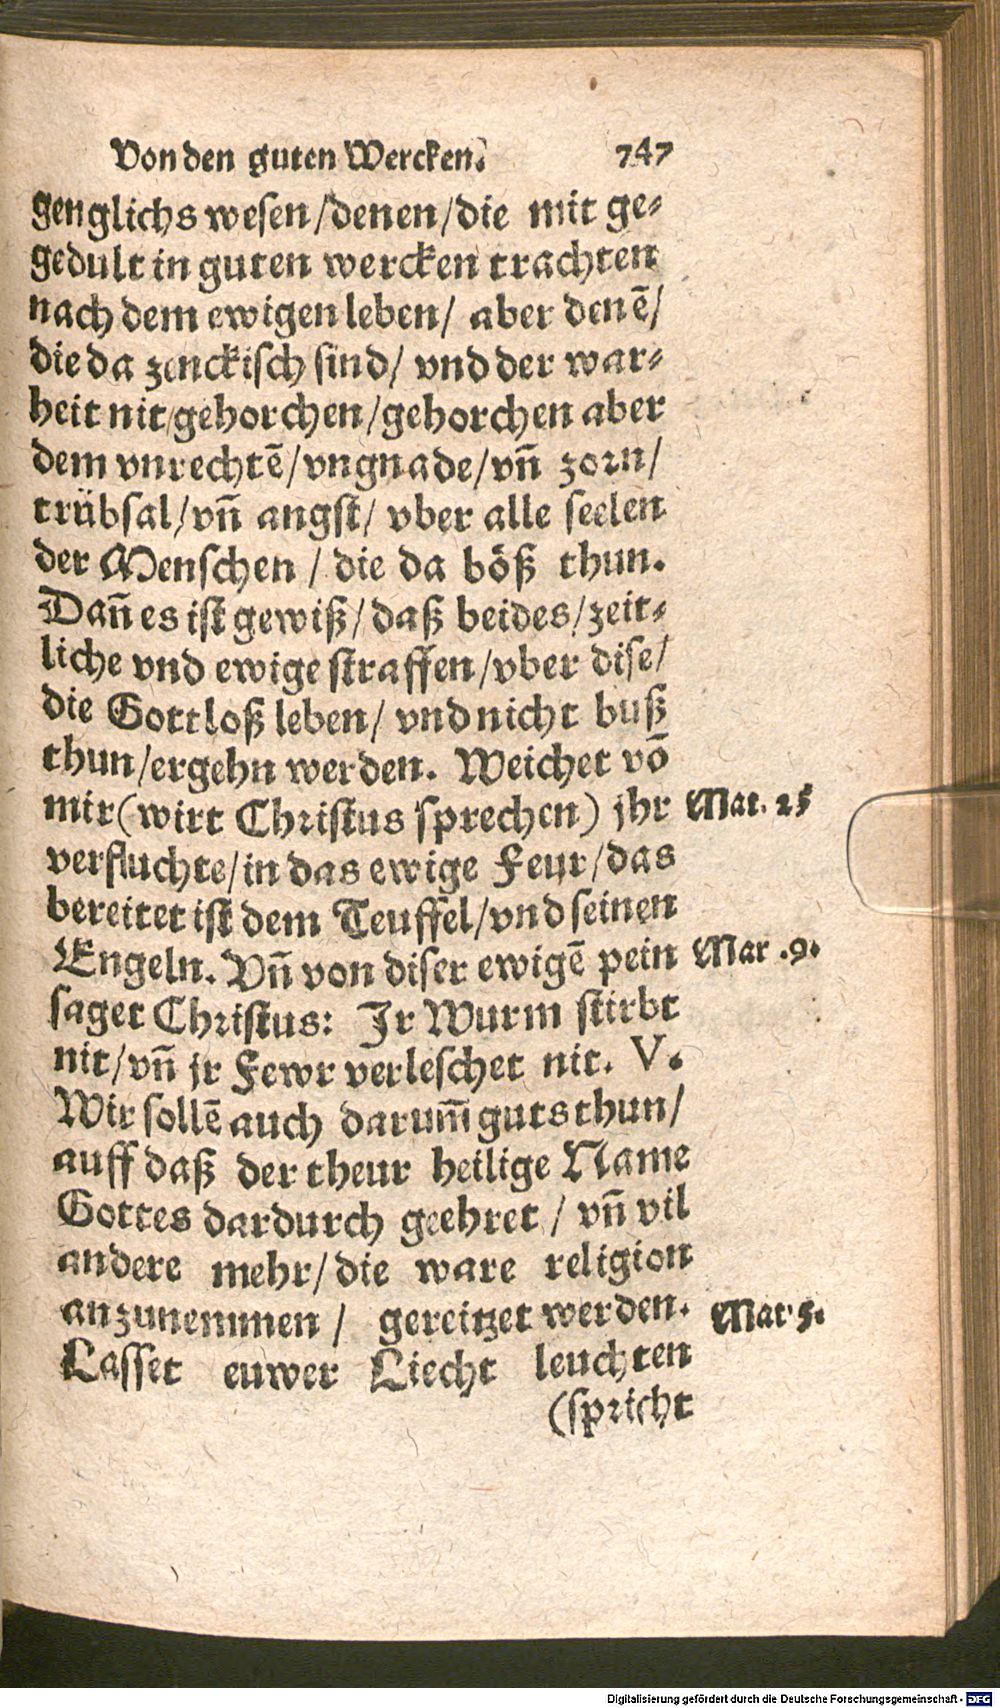 Von den guten Wercken. 747
genglichs wesen/denen/die mit ge⸗
gedult in guten wercken trachten
nach dem ewigen leben/ aber denē/
die da zenckisch sind/ vnd der war⸗
heit nit/gehorchen/gehorchen aber
dem vnrechtē/vngnade/vñ zorn/
trübsal/vñ angst/ vber alle seelen
der Menschen / die da böß thun.
Dañ es ist gewiß/ daß beides/zeit⸗
liche vnd ewige straffen/vber dise/
die Gottloß leben/ vnd nicht buß
thun/ergehn werden. Weichet vō
mir(wirt Christus sprechen) jhr Mat. 25
verfluchte/in das ewige Feur/das
bereitet ist dem Teuffel/vnd seinen
Engeln. Vñ von diser ewigē pein Mar .9.
saget Christus: Ir Wurm stirbt
nit/vñ jr Fewr verleschet nit. V.
Wir sollē auch darum̄ guts thun/
auff daß der theur heilige Name
Gottes dardurch geehret / vñ vil
andere mehr/die ware religion
anzunemmen / gereitzet werden. Mat 5.
Lasset euwer Liecht leuchten
(spricht
Digitalisierung gefördert durch die Deutsche Forschungsgemeinschaft - DFG